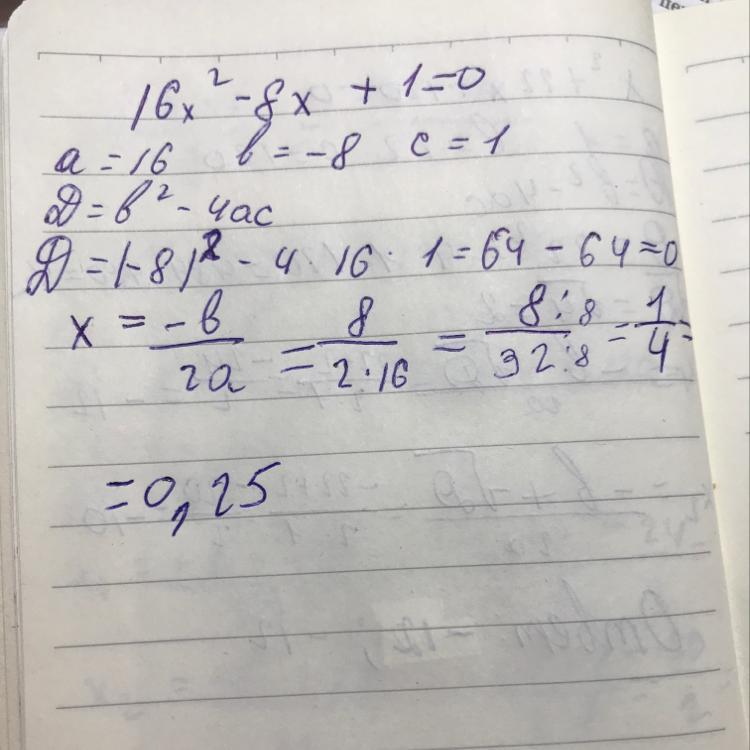 16x² - 8x + 1 = 0
a = 16 b = -8 c = 1
D = b² - 4ac
D = (-8)² - 4 · 16 · 1 = 64 - 64 = 0
x = -b/2a = 8/2·16 = 8:8/32:8 = 1/4 =
= 0,25